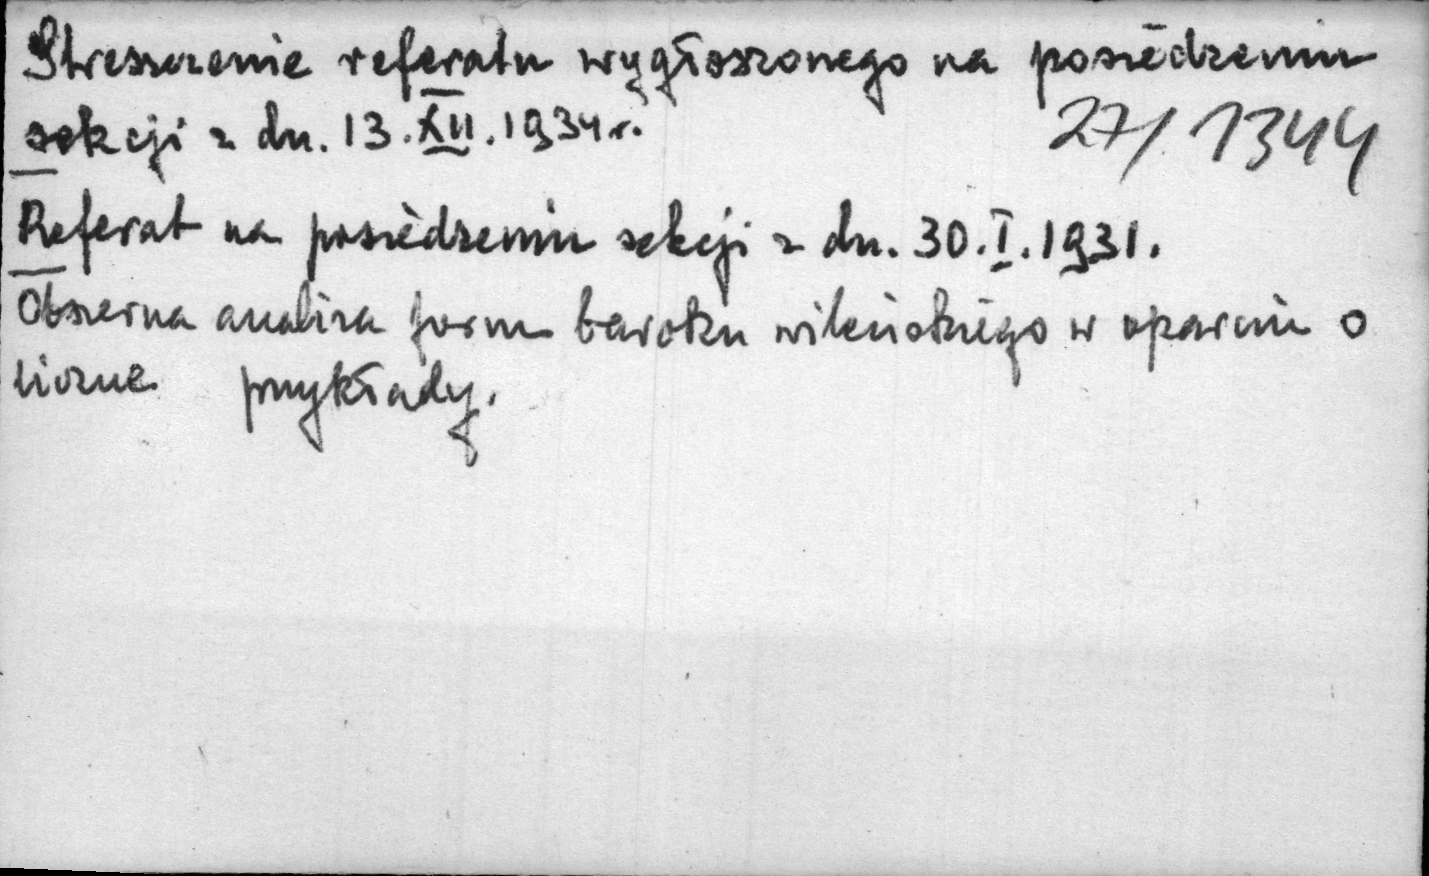 Streszczenie referatu wygłoszonego na posiedzeniu
sekcji z dn. 13.XII.1934 r.
27/1344
Referat na posiedzeniu sekcji z dn. 30.I.1931.
Obszerna analiza form baroku wileńskiego w oparciu o
liczne przykłady.